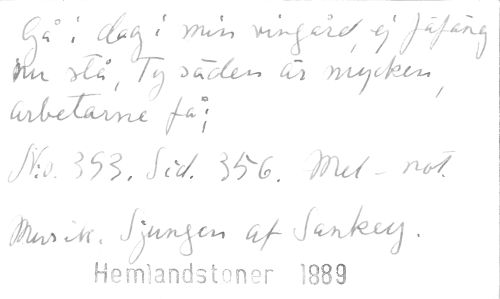 Gå i dag i min vingård, ej fåfäng
nu stå, Ty säden är mycken,
arbetarne få;
No. 393. Sid. 356. Mel - not.
Musik. Sjungen af Sankey.
Hemlandstoner 1889